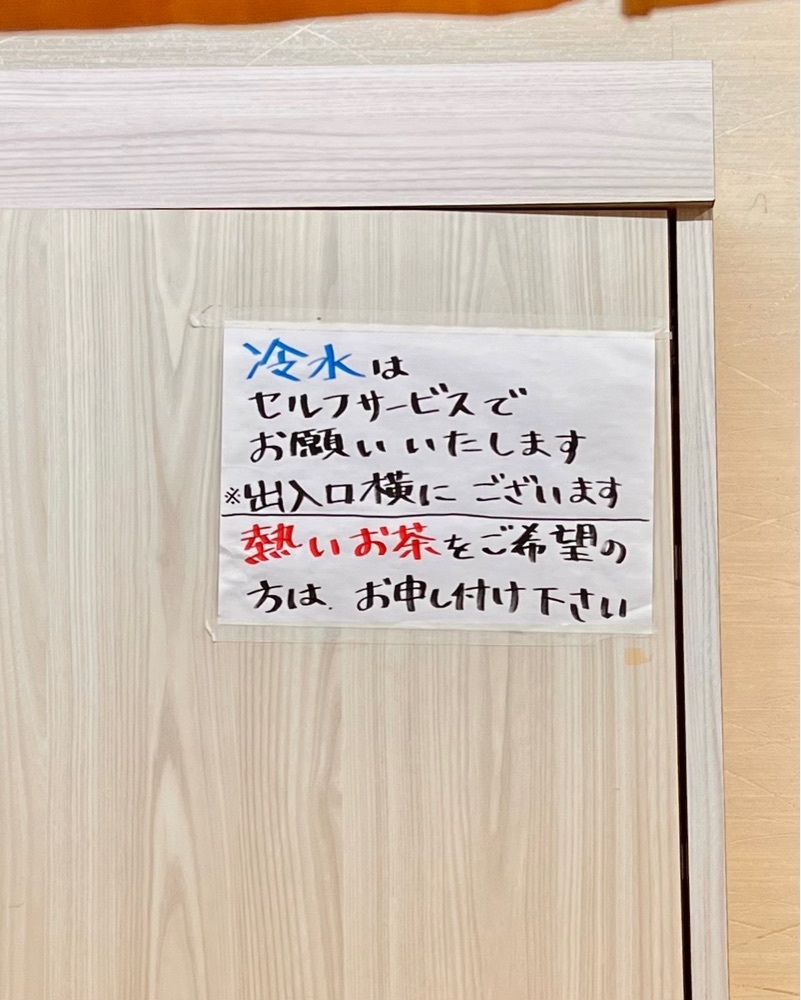 冷水は
セルフサービスで
お願いいたします
※出入口横にございます
熱いお茶をご希望の
方は、お申し付け下さい